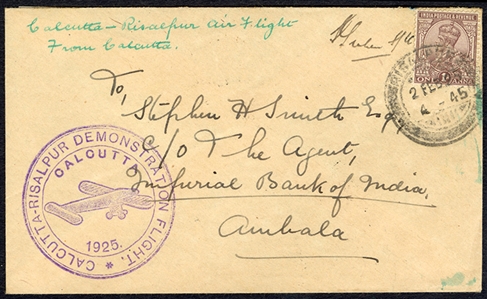 Calcutta – Risalpur Air Flight
From Calcutta.
INDIA POSTAGE & REVENUE
2 FEB
4 - 45
To,
Stephen H Smith Esq,
C/o The Agent,
Imperial Bank of India,
Ambala
CALCUTTA-RISALPUR DEMONSTRATION FLIGHT. *
CALCUTTA
1925.